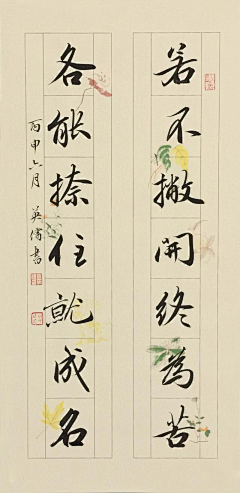 若不撇開終為苦
各能捺住就成名
丙申六月 英儒書